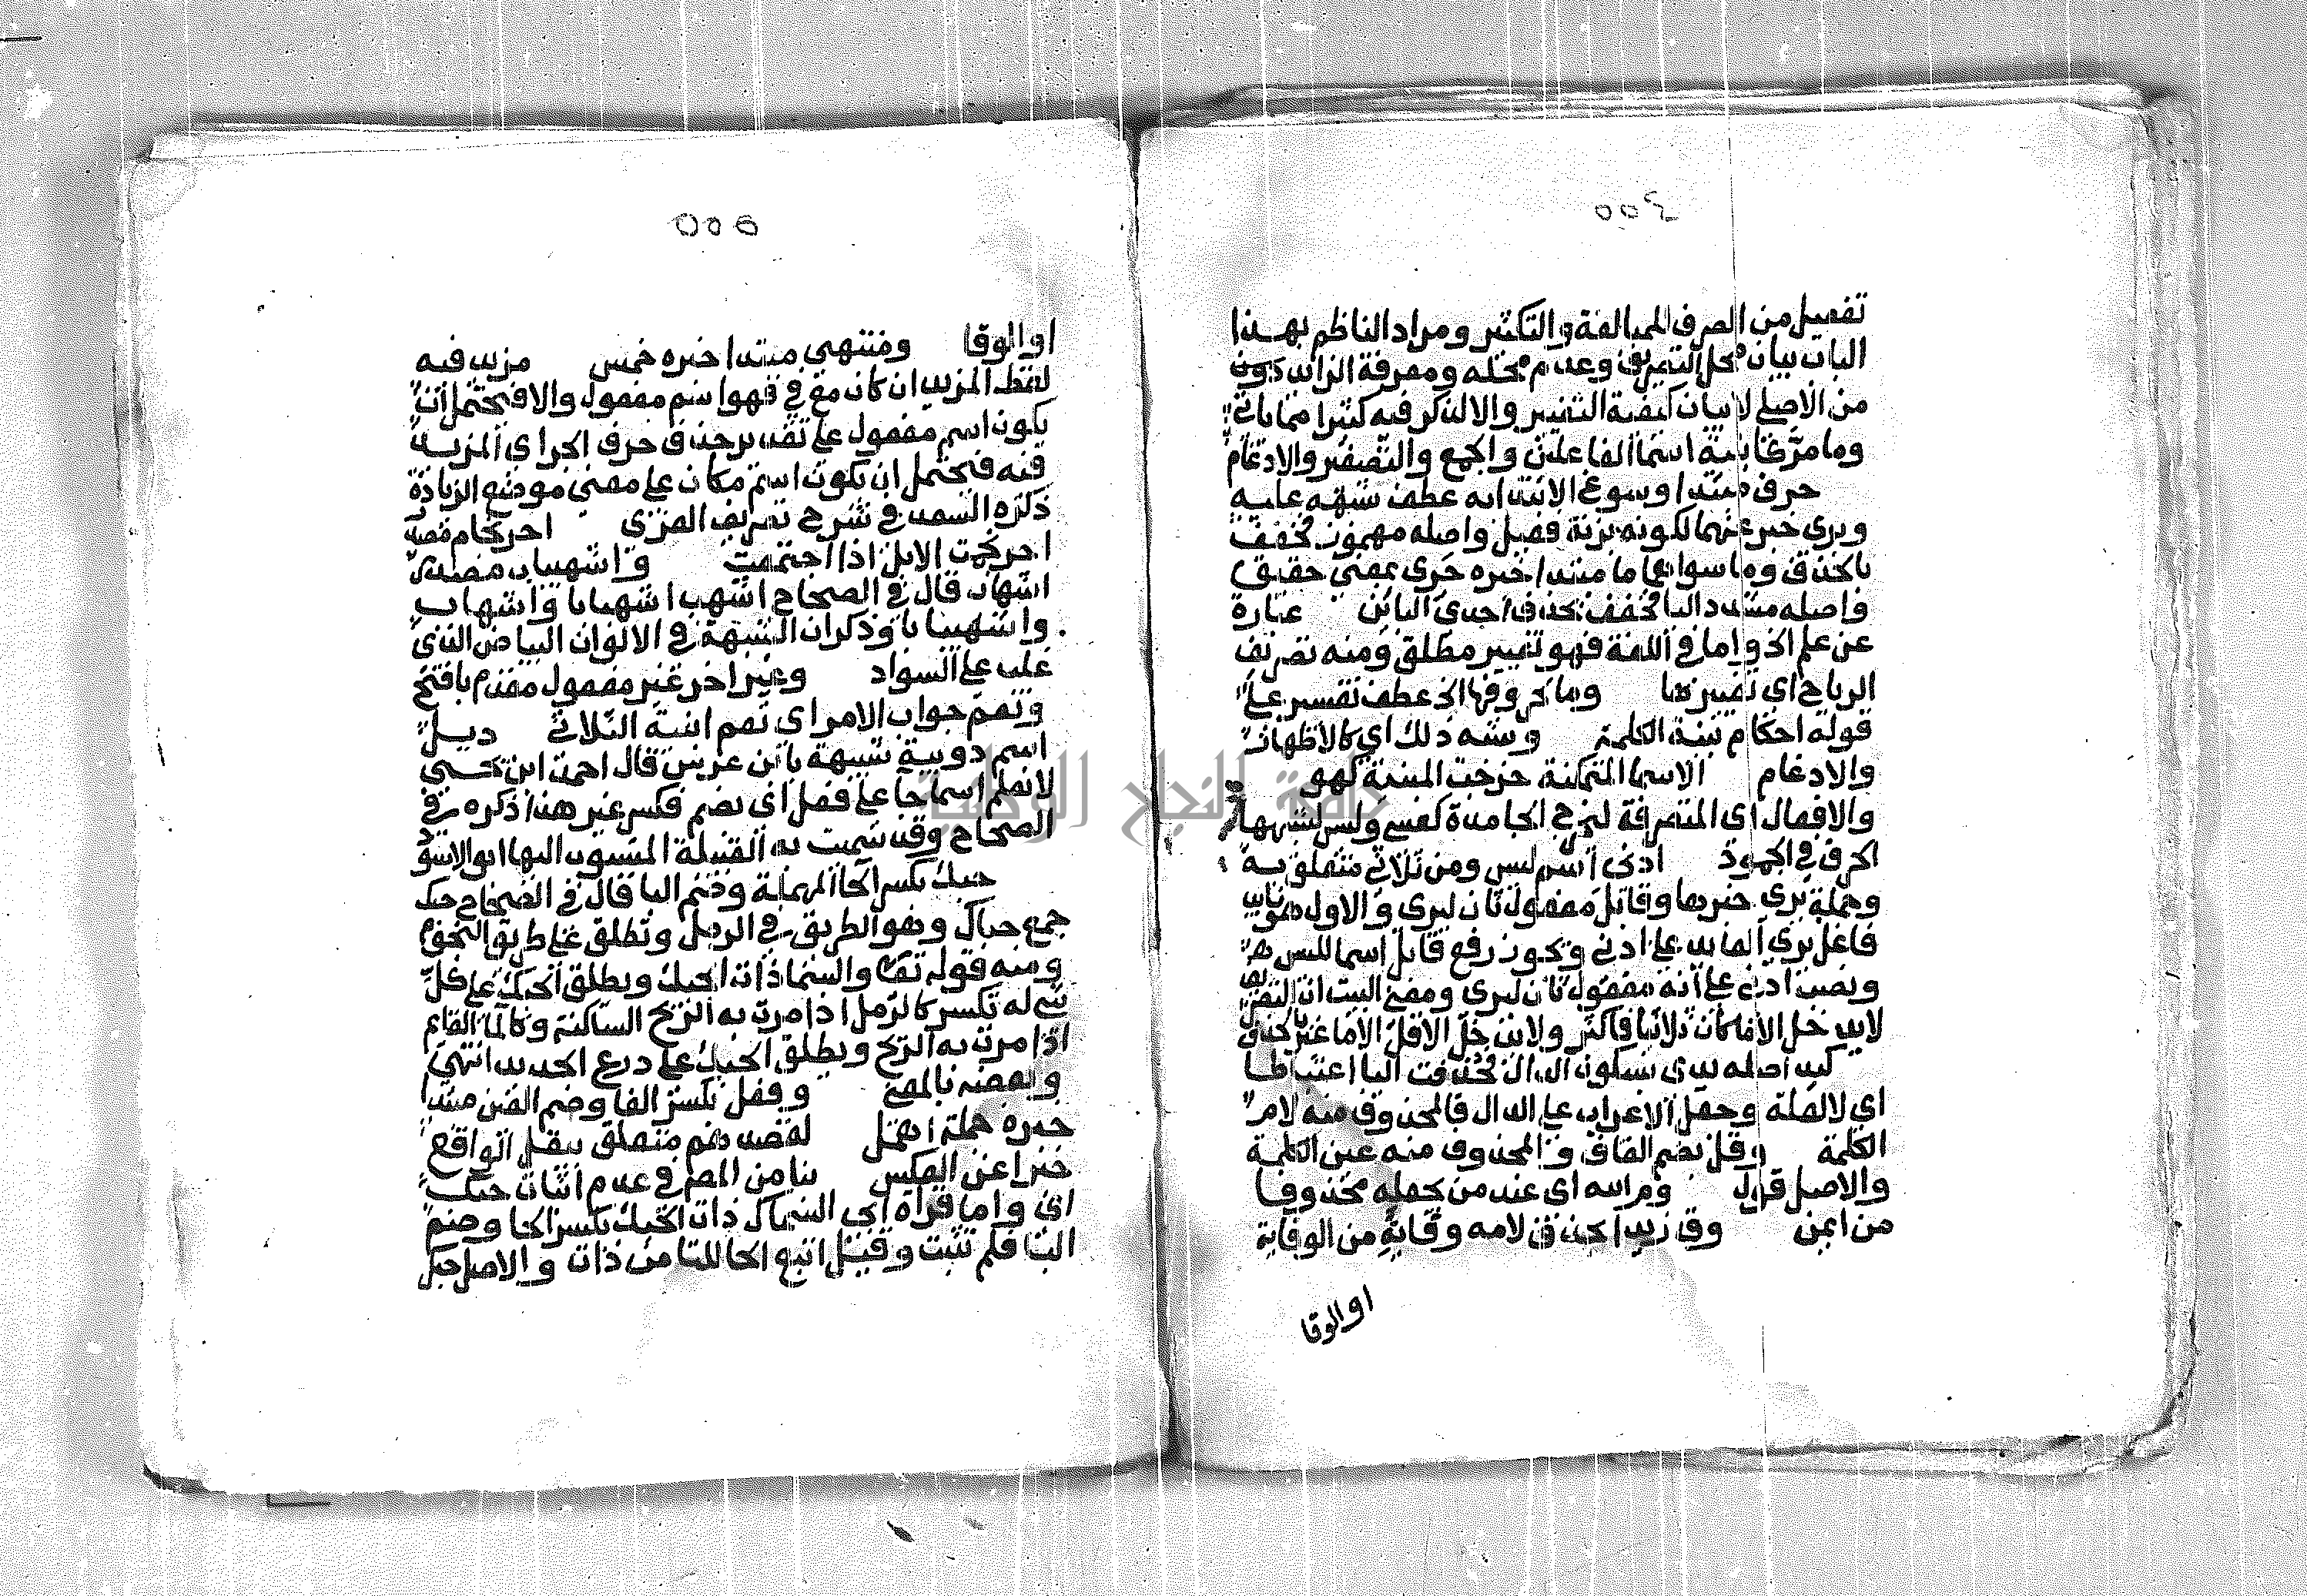 ٥٥٤
تفعيل من الصرف للمبالغة والتكثير ومراد الناظم بهذا
الباب بيان محل التصريف وعدم محله ومعرفة الزائد دون
من الاصلي لا بيان كيفية التغيير والا لذكر فيه كثيرا مما ياتي
وما مر كابنية اسما الفاعلين والجمع والتصغير والادغام
حرف مبتدا وسوغ الابتدا به عطف شبهه عليه
وبري خبر عنهما لكونه بزنة فعيل واصله مهموز فخفف
بالحذف وما سواهما ما مبتدا خبره حرى بمعني حقيق
واصله مشدد اليا فخفف بحذف احدى اليائين عبارة
عن علم الخ واما في اللغة فهو تغيير مطلق ومنه تصريف
الرياح اي تغييرها وما لحروفها الخ عطف تفسير علي
قوله احكام بنية الكلمة وشبه ذلك اي كالاظهار
والادغام الاسما المتمكنة خرجت المبنية كهو
والافعال اي المتصرفة ليخرج الجامدة كعسي وليس لشبهها
الحرف في الجمود ادنى اسم ليس ومن ثلاثي متعلق به
وجملة يرى خبرها وقابل مفعول ثان ليرى والاول هو نايب
فاعل يري العايد علي ادنى ويجوز رفع قابل اسما لليس
ونصب ادنى علي انه مفعول ثان ليرى ومعني البيت ان التصريف
لا يدخل الا فيما كان ثلاثيا فاكثر ولا يدخل الاقل الا ما غير بحذف
كيد اصله يدي بسكون الدال فحذفت اليا اعتباطا
اي لا لعلة وجعل الاعراب علي الدال فالمحذوف منه لام
الكلمة وقل بضم القاف والمحذوف منه عين الكلمة
والاصل قول وم الله اي عند من يجعله محذوفا
من ايمن وق زيدا بحذف لامه وقاية من الوقاية
او الوقا
٥٥٥
او الوقا ومنتهي مبتدا خبره خمس مزيد فيه
لفظ المزيد ان كان مع في فهو اسم مفعول والا فيحتمل ان
يكون اسم مفعول علي تقدير حذف حرف الجر اي المزيد
فيه فيحتمل ان يكون اسم مكان علي معني موضع الزيادة
ذكره السعد في شرح تصريف العزى احرنجام مصدر
احرنجمت الابل اذا اجتمعت واشهيباب مصدر
اشهاب قال في الصحاح اشهب اشهبابا واشهاب
واشهيبابا وذكر ان الشبهة في الالوان البياض الذي
غلب علي السواد وغير اخر غير مفعول مقدم بافتح
وتعم جواب الامر اي تعم ابنية الثلاثي دئل
اسم دويبة شبيهة بابن عريس قال احمد ابن يحيي
لا نعلم اسما جا علي فعل اي بضم فكسر غير هذا ذكره في
الصحاح وقد سميت به القبيلة المنسوب اليها ابو الاسود
حبك بكسر الحا المهملة وضم البا قال في الصحاح حبك
جمع حباك وهو الطريق في الرمل وتطلق علي طريق النجوم
ومنه قوله تعالى والسما ذات الحبك ويطلق الحبك علي كل
شي له تكسر كالرمل اذا مرت به الريح الساكنة وكالما القايم
اذا مرت به الريح ويطلق الحبك علي درع الحديد انتهي
وبعضه بالمعني وفعل بكسر الفا وضم العين مبتدا
خبره جملة اهمل لقصدهم متعلق بيقل الواقع
خبرا عن العكس بنا من المص في عدم اثبات حبك
اي واما قراة ابي السمال ذات الحبك بكسر الحا وضم
البا فلم تثبت وقيل اتبع الحا للتا من ذات والاصل حبك
جامعة النجاح الوطنية